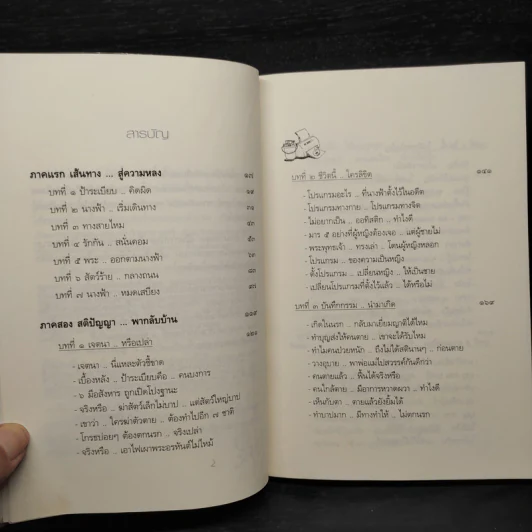 สารบัญ
ภาคแรก เส้นทาง ... สู่ความหลง ๑๗
บทที่ ๑ ป้าระเบียบ .. คิดผิด ๑๙
บทที่ ๒ นางฟ้า .. เริ่มเดินทาง ๓๑
บทที่ ๓ ทางสายไหม ๔๓
บทที่ ๔ รักกัน .. สนั่นดอม ๕๓
บทที่ ๕ พระ .. ออกตามนางฟ้า
บทที่ ๖ สัตว์ร้าย .. กลางถนน
บทที่ ๗ นางฟ้า .. หมดเสบียง
ภาคสอง สติปัญญา ... พากลับบ้าน
บทที่ ๑ เจตนา .. หรือเปล่า
- เจตนา .. นี่แหละตัวชี้ขาด
- เบื้องหลัง .. ป้าระเบียบคือ .. คนบงการ
- ๖ มือสังหาร ถูกเปิดโปงฐานะ
- จริงหรือ .. ฆ่าสัตว์เล็กไม่บาป .. แต่สัตว์ใหญ่บาป
- เขาว่า .. ใครฆ่าตัวตาย .. ต้องทำไปอีก ๗ ชาติ
- โกรธบ่อยๆ ต้องตกนรก .. จริงเปล่า
- จริงหรือ .. เอาไฟเผาพระอรหันต์ไม่ไหม้
บทที่ ๒ ชีวิตนี้ .. ใครลิขิต ๑๔๑
- โปรแกรมอะไร .. ที่นางฟ้าตั้งไว้ในอดีต
- โปรแกรมทางกาย .. โปรแกรมทางจิต
- ไม่อยากเป็น .. ออทิสติก .. ทำไงดี
- มาร ๕ อย่างที่ผู้หญิงต้องเจอ .. แต่ผู้ชายไม่
- พระพุทธเจ้า .. ทรงเล่า .. โดนผู้หญิงหลอก
- โปรแกรม .. ของความเป็นหญิง
- ตั้งโปรแกรม .. เปลี่ยนหญิง .. ให้เป็นชาย
- เปลี่ยนโปรแกรมที่ตั้งไว้แล้ว .. ได้หรือไม่
บทที่ ๓ บันทึกกรรม .. นำมาเกิด ๑๖๙
- เกิดในนรก .. กลับมาเยี่ยมญาติได้ไหม
- ทำบุญส่งให้คนตาย .. เขาจะได้รับไหม
- ทำไมคนป่วยหนัก .. ถึงไม่ได้สตินานๆ .. ก่อนตาย
- วางอุบาย .. พาพ่อแม่ไปสวรรค์ดีกว่า
- คนตายแล้ว .. ฟื้นได้จริงหรือ
- คนใกล้ตาย .. มีอาการหวาดผวา .. ทำไงดี
- เห็นกับตา .. ตายแล้วยังยิ้มได้
- ทำบาปมาก .. มีทางทำให้ .. ไม่ตกนรก